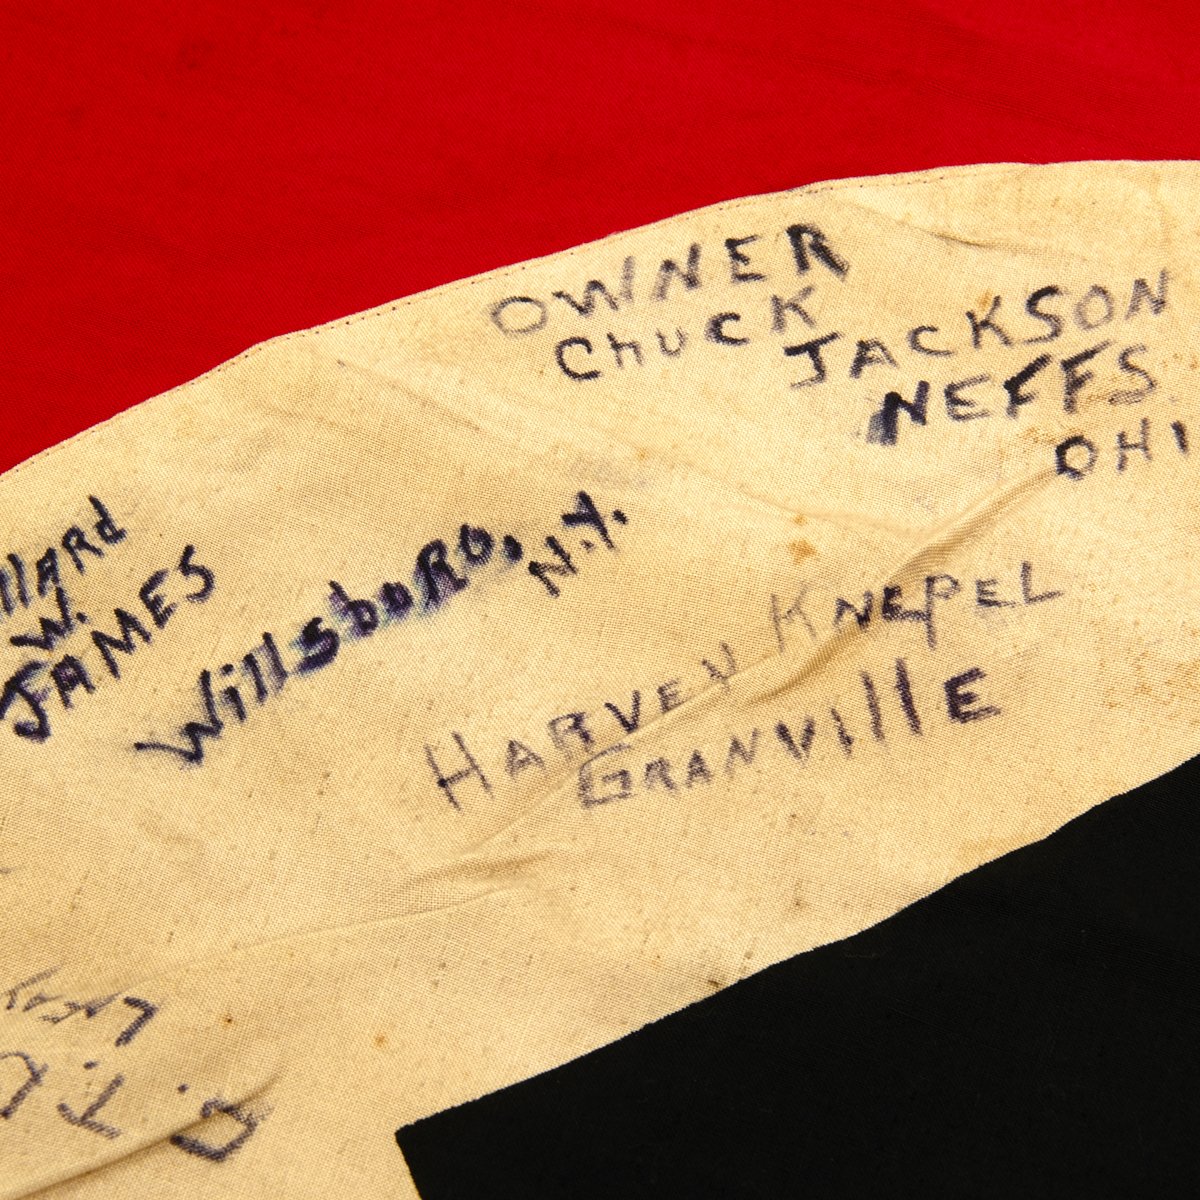 OWNER
Chuck
JACKSON
NEFFS
OHI
llARd
W.
JAMES
Willsboro,
N.Y.
HARVEY KNEPEL
GRANVIllE